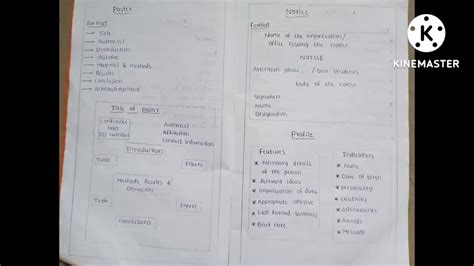 Poster
Format
Title
Author(s)
Introduction
Material & methods
Results
Conclusions
Acknowledgement
Title of poster
Conference
logo
ID number
Author(s)
Affiliation
contact information
Introduction
Figure
Methods, Results &
Discussion
Figure
conclusions
Notice
Format
Name of the organisation/
office issuing the notice
NOTICE
Attention please / Dear students
body of the notice
Signature
Name
Designation
Profile
Features
Necessary details
of the person
Relevant ideas
organisation of data
Appropriate cohesive
Well formed sentences
Indicators
Name
Date of birth
personality
creativity
achievements
Awards
Message
KINEMASTER